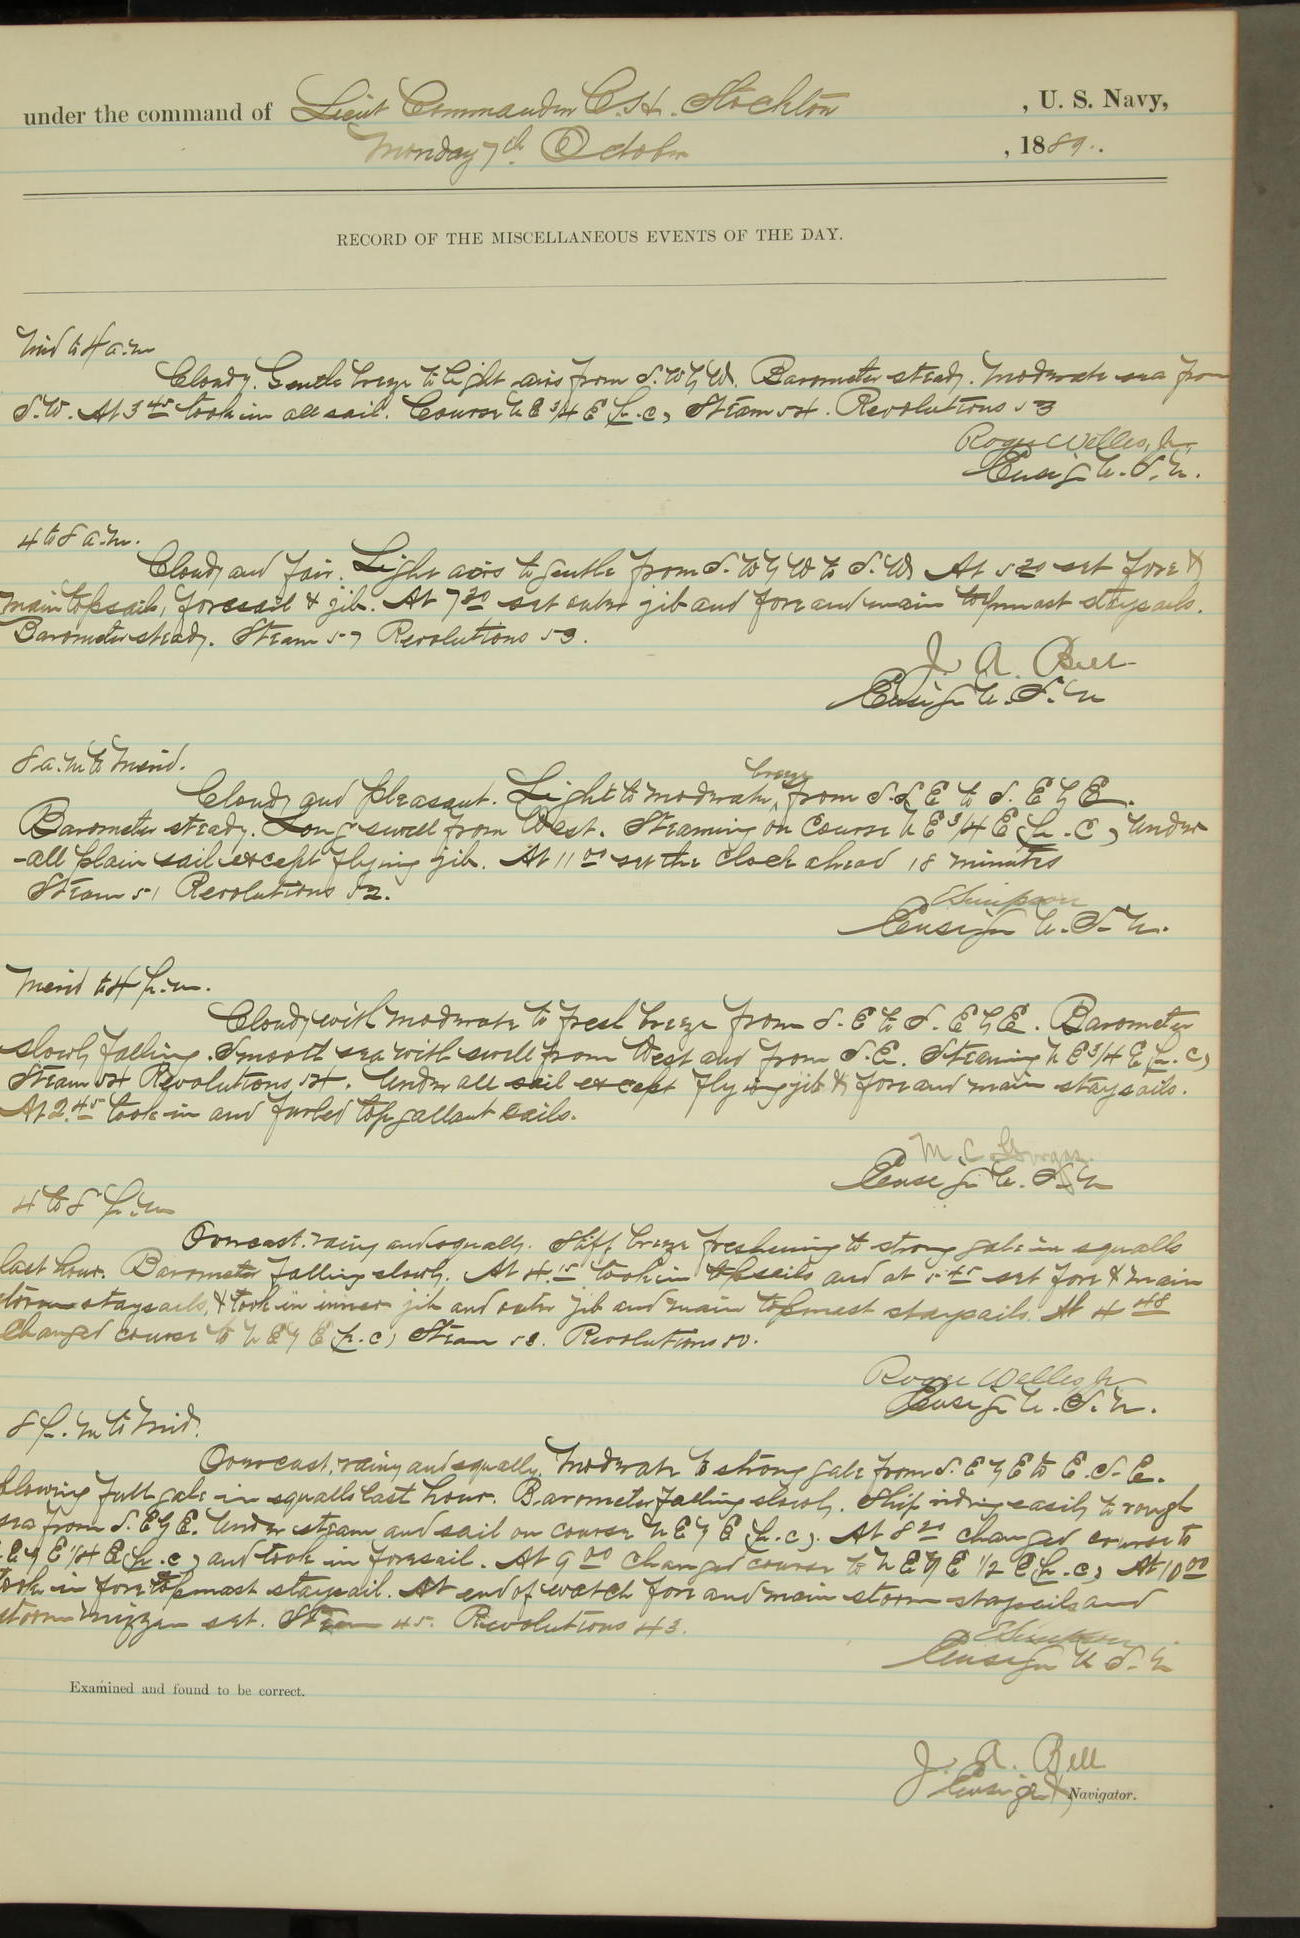 under the command of Lieut Commander C.H. Stockton , U. S. Navy,
Monday 7th October , 1889.
RECORD OF THE MISCELLANEOUS EVENTS OF THE DAY.
Mid to 4 a.m
Cloudy. Gentle breeze to light airs from S.W by W. Barometer steady. Moderate sea from
S.W. At 3 45 took in all sail. Course N E 3/4 E (p.c) Steam 54. Revolutions 53
Roger Welles, Jr,
Ensign U.S.N.
4 to 8 a.m.
Cloudy and fair. Light airs to gentle from S. W by W to S.W. At 5 20 set fore &
main topsails, foresail & jib. At 7 20 set outer jib and fore and main topmast staysails.
Barometer steady. Steam 57 Revolutions 53.
J. A. Bell
Ensign U.S.N
8 a.m to Merid.
Cloudy and pleasant. Light to moderate breeze from S.S E to S. E by E.
Barometer steady. Long swell from West. Steaming on course N E 3/4 E (p.c) under
all plain sail except flying jib. At 11 00 set the clock ahead 18 minutes
Steam 51 Revolutions 52.
E Simpson
Ensign U.S.N.
Merid to 4 p.m.
Cloudy with moderate to fresh breeze from S.E to S. E by E. Barometer
slowly falling. Smooth sea with swell from West and from S.E. Steaming N E 3/4 E (p.c)
Steam 54 Revolutions 54. Under all sail except flying jib & fore and main staysails.
At 2.45 took in and furled top gallant sails.
M. C. Gorgas.
Ensign U.S.N
4 to 8 p.m
Overcast, rainy and squally. Stiff breeze freshening to strong gale in squalls
last hour. Barometer falling slowly. At 4.15 took in topsails and at 5 45 set fore & main
storm staysails, & took in inner jib and outer jib and main topmast staysails. At 4 48
Changed course to N E by E (p.c) Steam 58. Revolutions 50.
Roger Welles Jr
Ensign U.S.N.
8 p.m to Mid.
Overcast, rainy and squally. Moderate to strong gale from S. E by E to E.S.E.
blowing full gale in squalls last hour. Barometer falling slowly. Ship riding easily to rough
sea from S. E by E. Under steam and sail on course N E by E (p.c). At 8 20 changed course to
E by E 1/4 E (p.c) and took in foresail. At 9 00 changed course to N E by E 1/2 E (p.c) At 10 00
took in fore topmast staysail. At end of watch fore and main storm staysails and
storm mizzen set. Steam 45. Revolutions 43.
E Simpson
Ensign U.S.N
Examined and found to be correct.
J. A. Bell
Ensign & Navigator.